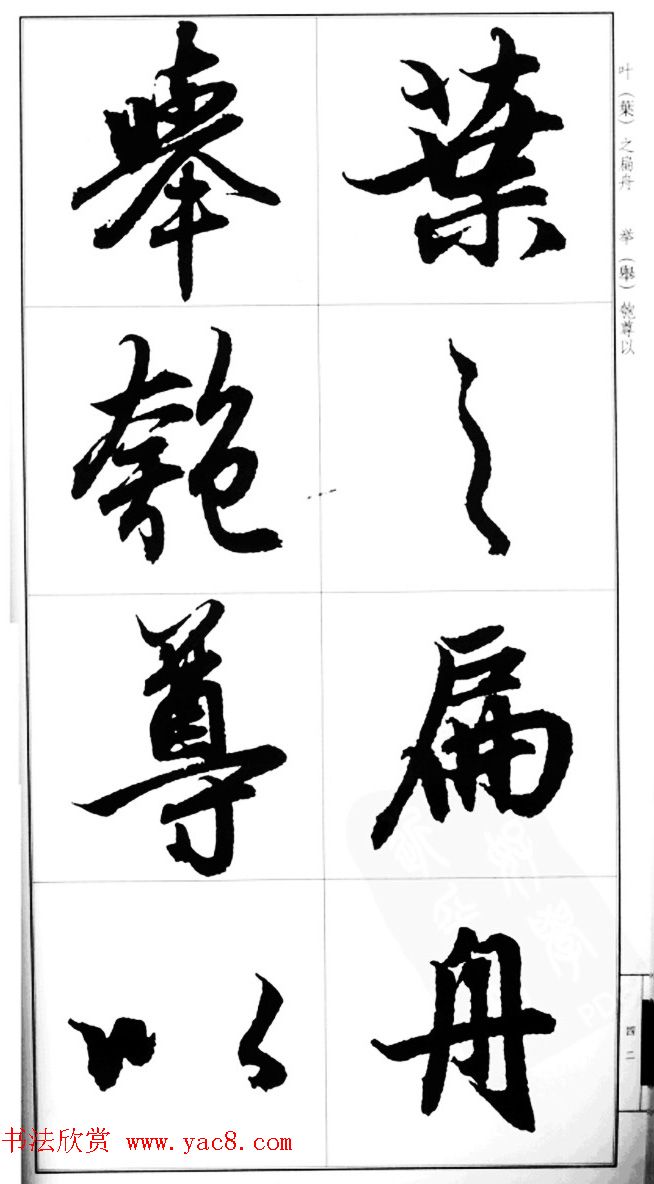 葉之扁舟
舉匏尊以
叶（葉）之扁舟　举（舉）匏尊以
四二
书法欣赏 www.yac8.com